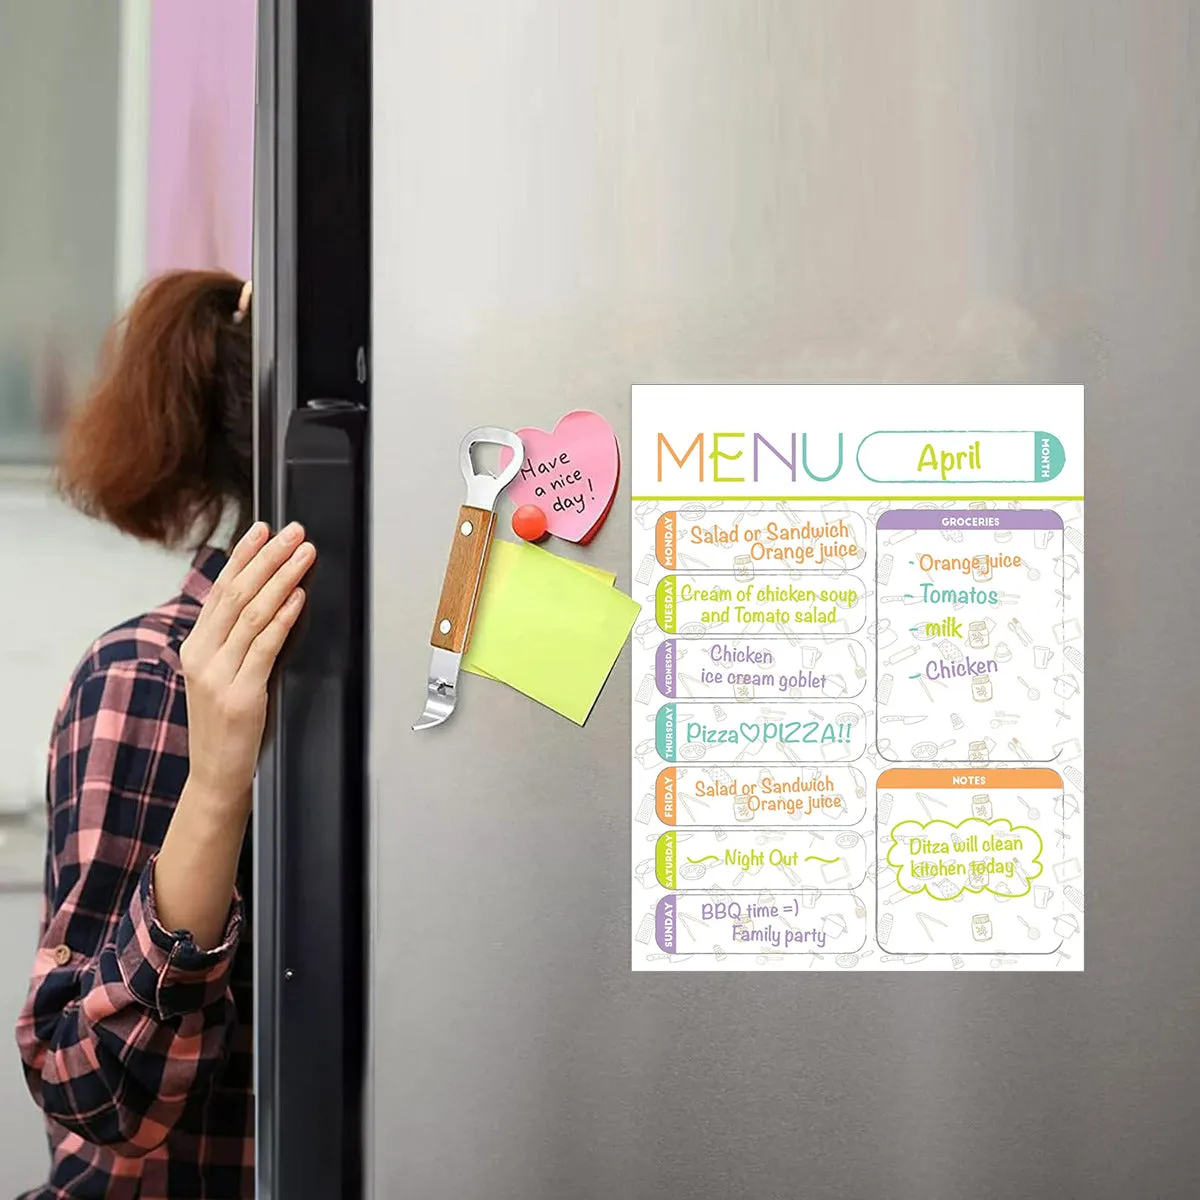 Have
a nice
day!
MENU
April
MONTH
MONDAY
Salad or Sandwich
Orange juice
TUESDAY
Cream of chicken soup
and Tomato salad
WEDNESDAY
Chicken
ice cream goblet
THURSDAY
Pizza♡PIZZA!!
FRIDAY
Salad or Sandwich
Orange juice
SATURDAY
~ Night Out ~
SUNDAY
BBQ time =)
Family party
GROCERIES
- Orange juice
- Tomatos
- milk
- Chicken
NOTES
Ditza will clean
kitchen today